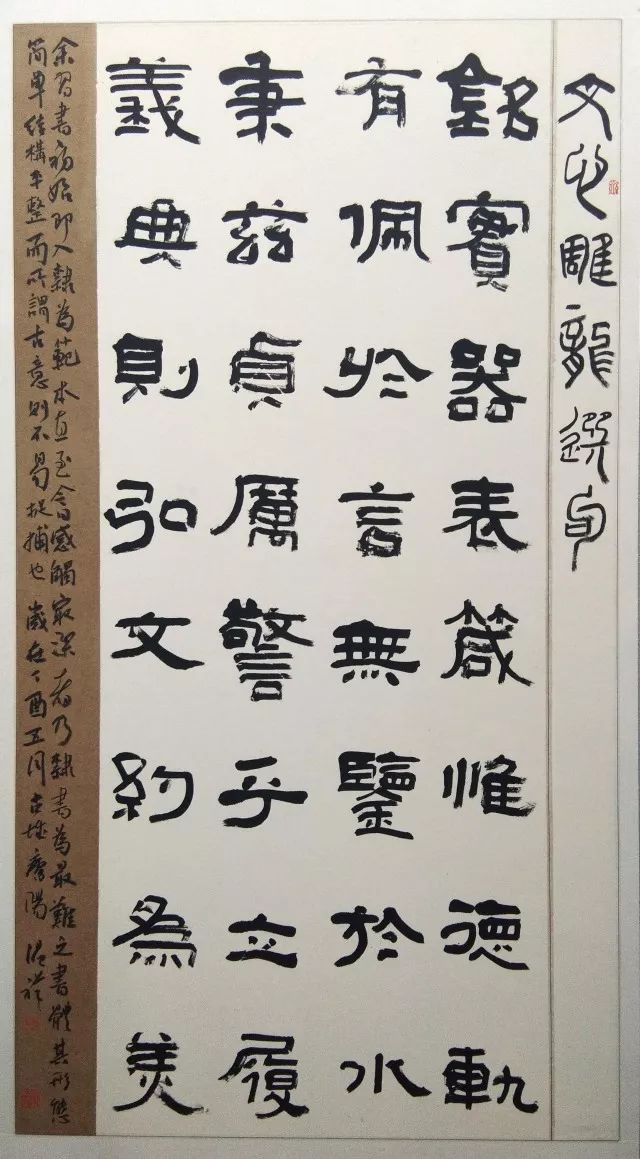 文心雕龍選句
銘實器表箴惟德軌
有佩於言無鑒於水
秉茲貞厲警乎立履
義典則弘文約為美
余習書初始即入隸為範本直至今感觸最深者乃隸書為最難之書體其形態
簡單結構平整而所謂古意則不易捉捕也 歲在丁酉五月古城襄陽